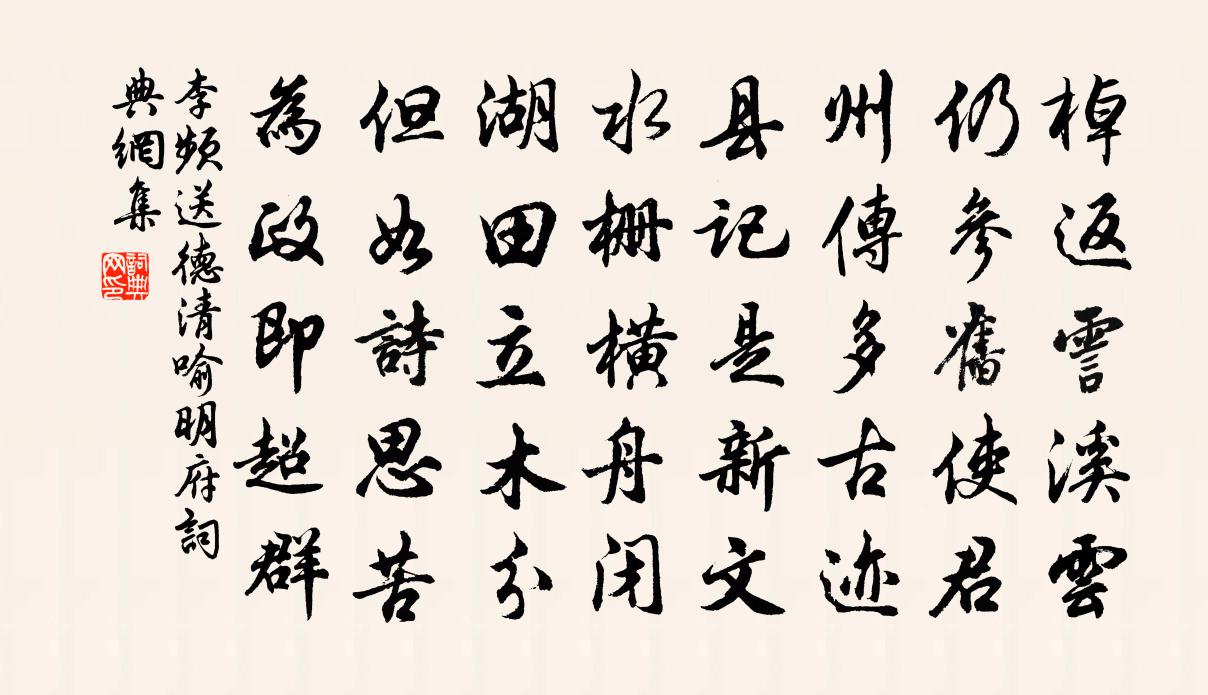 棹返霅溪雲
仍參舊使君
州傳多古迹
县記是新文
水栅橫舟闭
湖田立木分
但如詩思苦
為政即超群
李頻送德清喻明府詞
典網集
詞典
网印